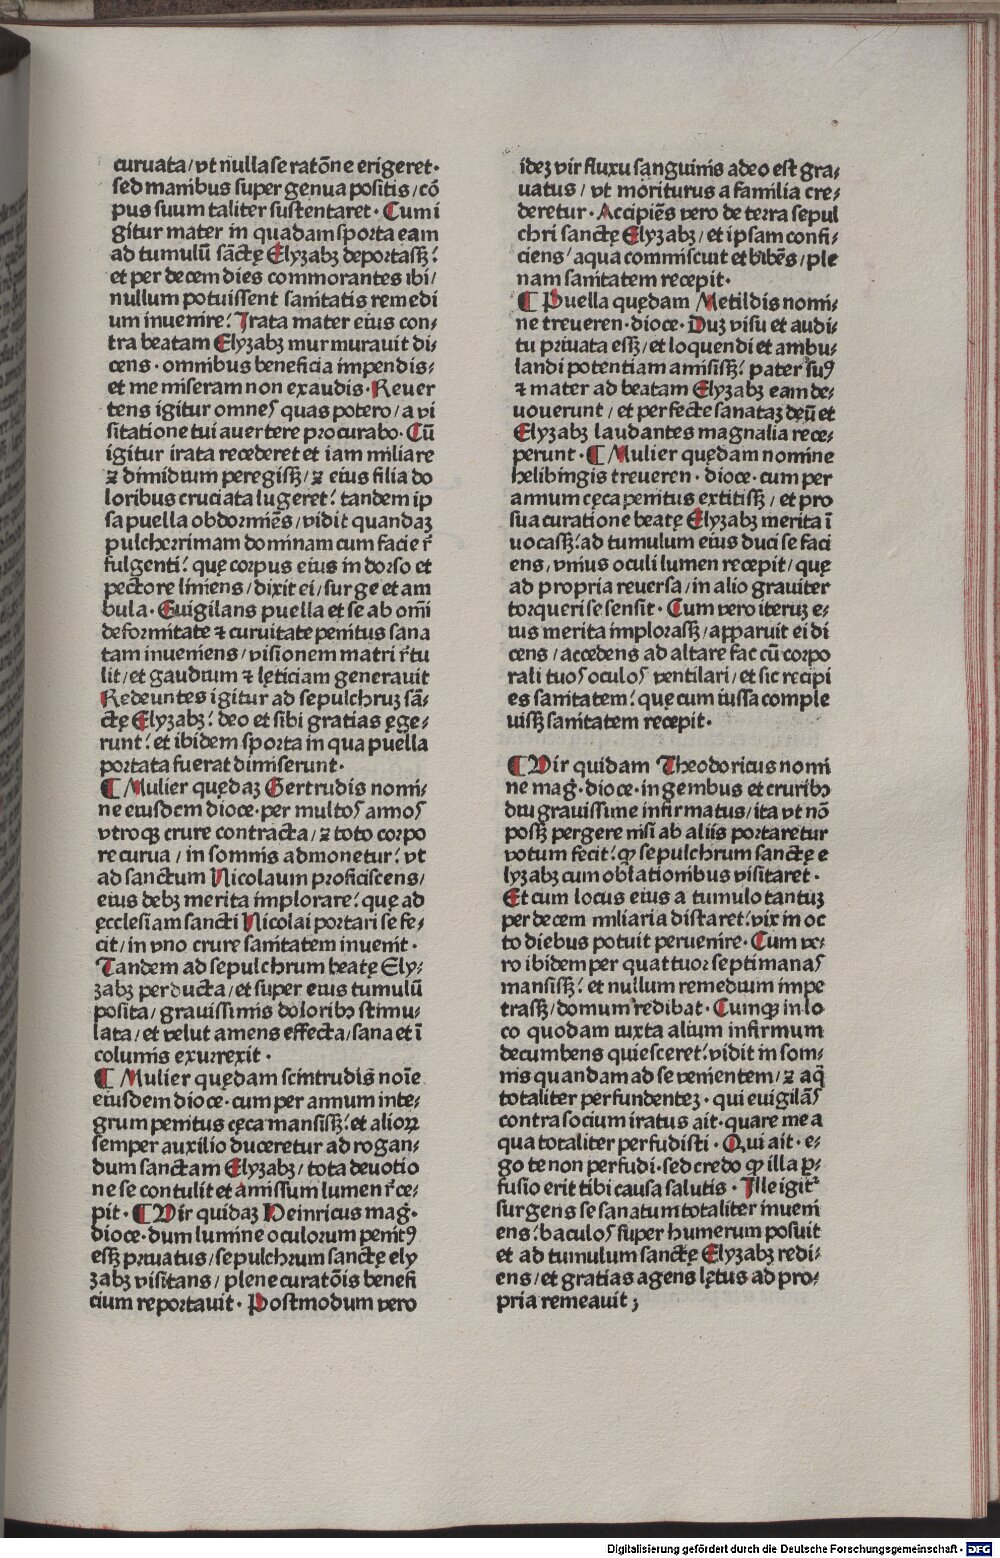 curuata/vt nulla se ratōne erigeret·
sed manibus super genua positis/cō
pus suum taliter sustentaret· Cum i
gitur mater in quadam sporta eam
ad tumulū sācte̜ Elyzabꝫ deportasꝫ:
et per decem dies commorantes ibi/
nullum potuissent sanitatis remedi
um inuenire: Irata mater eius con⸗
tra beatam Elyzabꝫ murmurauit di⸗
cens· omnibus beneficia impendis⸗
et me miseram non exaudis· Reuer
tens igitur omnes quas potero/a vi
sitatione tui auertere procurabo· Cū
igitur irata recederet et iam miliare
⁊ dimidium peregissꝫ/⁊ eius filia do
loribus cruciata lugeret: tandem ip
sa puella obdormiēs/vidit quandaꝫ
pulcherrimam dominam cum facie r̄
fulgenti: que̜ corpus eius in dorso et
pectore liniens/dixit ei/surge et am
bula· Euigilans puella et se ab om̄i
deformitate ⁊ curuitate penitus sana
tam inueniens/visionem matri r̄tu
lit/et gaudium ⁊ le̜ticiam generauit
Redeuntes igitur ad sepulchruꝫ sā⸗
cte̜ Elyzabꝫ: deo et sibi gratias e̜ge⸗
runt: et ibidem sporta in qua puella
portata fuerat dimiserunt·
¶ Mulier que̜daꝫ Gertrudis nomi⸗
ne eiusdem dioce· per multos annos
vtroqꝫ crure contracta/⁊ toto corpo
re curua/in somnis admonetur: vt
ad sanctum Nicolaum proficiscens/
eius debꝫ merita implorare: que̜ ad
e̜cclesiam sancti Nicolai portari se fe⸗
cit/in vno crure sanitatem inuenit·
Tandem ad sepulchrum beate̜ Ely⸗
zabꝫ perducta/et super eius tumulū
posita/grauissimis doloribꝰ stimu⸗
lata/et velut amens effecta/sana et ī
columis exurrexit·
¶ Mulier que̜dam scintrudis noīe
eiusdem dioce· cum per annum inte⸗
grum penitus ce̜ca mansissꝫ: et alioꝝ
semper auxilio duceretur ad rogan⸗
dum sanctam Elyzabꝫ/tota deuotio
ne se contulit et amissum lumen r̄ce⸗
pit· ¶ Vir quidaꝫ Heinricus mag̉·
dioce· dum lumine oculorum penitꝰ
essꝫ priuatus/sepulchrum sancte̜ ely
zabꝫ visitans/plene curatōis benefi
cium reportauit· Postmodum vero
idez vir fluxu sanguinis adeo est gra⸗
uatus/vt moriturus a familia cre⸗
deretur· Accipiēs vero de terra sepul
chri sancte̜ Elyzabꝫ/et ipsam confi⸗
ciens aqua commiscuit et bibēs/ple
nam sanitatem recepit·
¶ Puella que̜dam Metildis nomi⸗
ne treueren· dioce· Duꝫ visu et audi⸗
tu priuata essꝫ/et loquendi et ambu⸗
landi potentiam amisissꝫ: pater suꝰ
⁊ mater ad beatam Elyzabꝫ eam de⸗
uouerunt/et perfecte sanataꝫ deū et
Elyzabꝫ laudantes magnalia rece⸗
perunt· ¶ Mulier que̜dam nomine
helibingis treueren· dioce· cum per
annum ce̜ca penitus extitissꝫ/et pro
sua curatione beate̜ Elyzabꝫ merita ī
uocassꝫ: ad tumulum eius duci se faci
ens/vnius oculi lumen recepit/que̜
ad propria reuersa/in alio grauiter
torqueri se sensit· Cum vero iteruꝫ e⸗
ius merita implorassꝫ/apparuit ei di
cens/accedens ad altare fac cū corpo
rali tuos oculos ventilari/et sic recipi
es sanitatem: que̜ cum iussa comple
uissꝫ sanitatem recepit·
¶ Vir quidam Theodoricus nomi
ne mag̉· dioce· in gembus et cruribꝰ
diu grauissime infirmatus/ita vt nō
possꝫ pergere nisi ab aliis portaretur
votum fecit: ꝙ sepulchrum sancte̜ e
lyzabꝫ cum oblationibus visitaret·
Et cum locus eius a tumulo tantuꝫ
per decem miliaria distaret: vix in oc
to diebus potuit peruenire· Cum ve⸗
ro ibidem per quattuor septimanas
mansissꝫ: et nullum remedium impe
trassꝫ/domum redibat· Cumqꝫ in lo⸗
co quodam iuxta alium infirmum
decumbens quiesceret: vidit in som⸗
nis quandam ad se venientem/⁊ aq̄
totaliter perfundenteꝫ· qui euigilās
contra socium iratus ait· quare me a
qua totaliter perfudisti· Qui ait· e⸗
go te non perfudi· sed credo ꝙ illa ꝑ⸗
fusio erit tibi causa salutis· Ille igit᷑
surgens se sanatum totaliter inueni
ens: baculos super humerum posuit
et ad tumulum sancte̜ Elyzabꝫ redi⸗
ens/et gratias agens le̜tus ad pro⸗
pria remeauit;
Digitalisierung gefördert durch die Deutsche Forschungsgemeinschaft · DFG